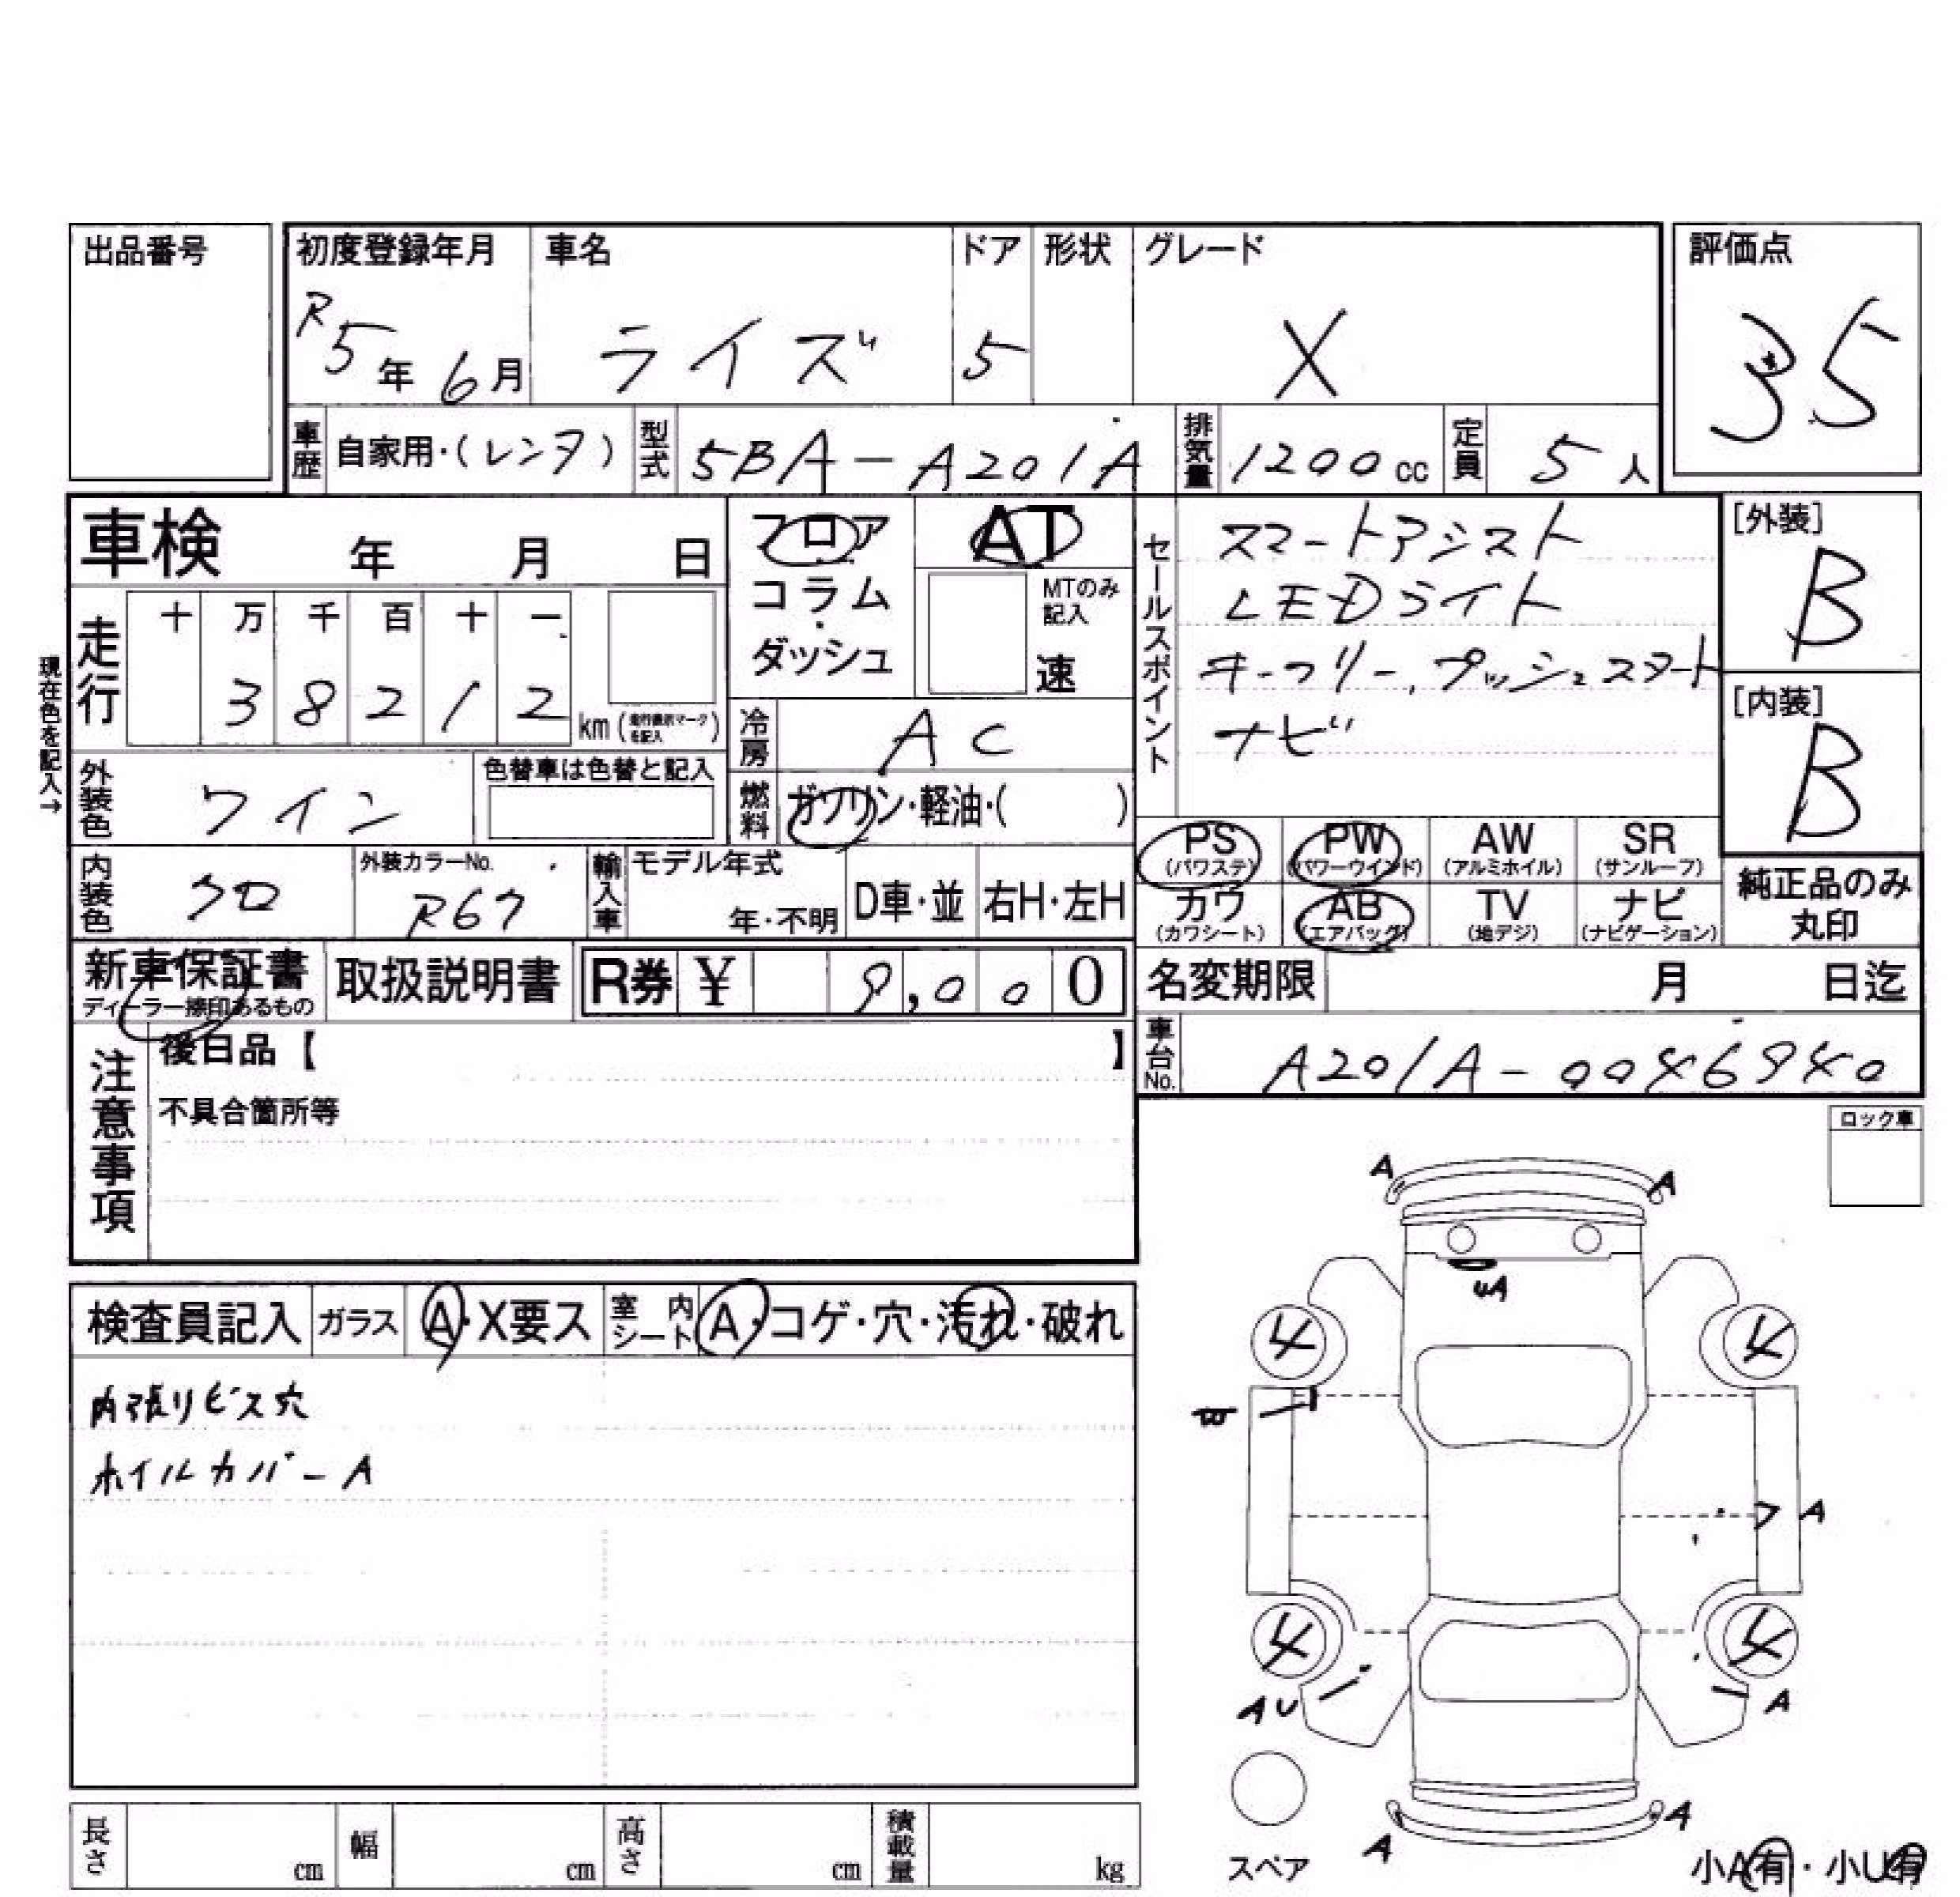 出品番号
初度登録年月 車名 ドア 形状 グレード 評価点
R5年6月 ライズ 5 X 35
車歴 自家用・(レンタ) 型式 5BA-A201A 排気量 1200cc 定員 5人
車検 年 月 日
フロア・コラム・ダッシュ
AT
MTのみ記入
速
セールスポイント
スマートアシスト
LEDライト
キーフリー、プッシュスタート
ナビ
[外装]
B
[内装]
B
現在色を記入→
走行 十 万 千 百 十 一
3 8 2 1 2 km (走行表示マークを記入)
冷房 AC
外装色 ワイン 色替車は色替と記入
燃料 ガソリン・軽油・( )
PS (パワステ) PW (パワーウインド) AW (アルミホイル) SR (サンルーフ)
カワ (カワシート) AB (エアバック) TV (地デジ) ナビ (ナビゲーション)
純正品のみ丸印
内装色 クロ 外装カラーNo. R67 輸入車 モデル年式 年・不明 D車・並 右H・左H
新車保証書 ディーラー捺印あるもの 取扱説明書 R券 ¥ 9,000
名変期限 月 日迄
車台No. A201A-0046940
注意事項
後日品【 】
不具合箇所等
ロック車
検査員記入 ガラス A・X要ス 室内シート A・コゲ・穴・汚れ・破れ
内張りビス穴
ホイルカバーA
A A
UA
4 4
A
4 4
AU A
スペア
A A
小A有・小U有
長さ cm 幅 cm 高さ cm 積載量 kg